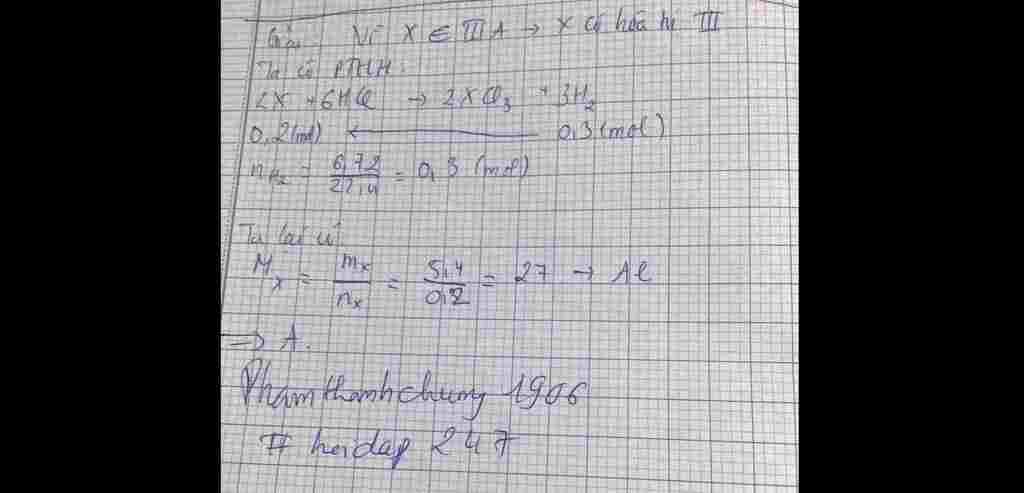 Giải: Vì X ∈ III A → X có hóa trị III
Ta có PTHH:
2X + 6HCl → 2XCl₃ + 3H₂
0,2(mol) ← 0,3(mol)
nH₂ = 6,72/22,4 = 0,3 (mol)
Ta lại có:
Mₓ = mₓ/nₓ = 5,4/0,2 = 27 → Al
=> A.
Phamthanhchung 1906
# hoidap 247